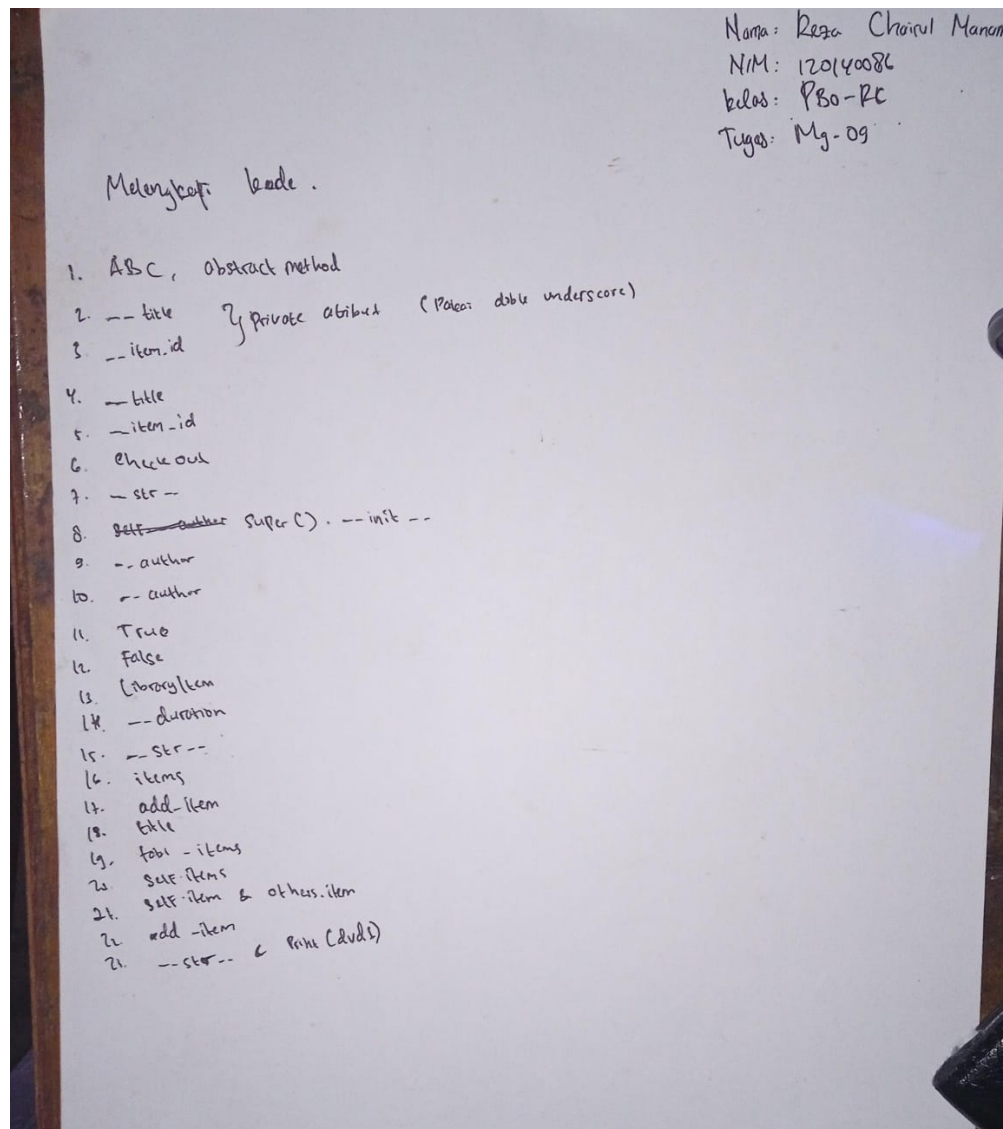 Nama: Reza Chairul Manam
NIM: 120140086
kelas: PBO-RC
Tugas: Mg-09
Melengkapi kode.
1. ABC, abstract method
2. __ title } Private atribut (Pakai doble underscore)
3. __item_id
4. __title
5. __item_id
6. Check out
7. __ str __
8. self.__author super(). __init__
9. __author
10. __ author
11. True
12. False
13. LibraryItem
14. __duration
15. __str__
16. items
17. add_item
18. title
19. _items
20. self.items
21. self.item & others.item
22. add_item
23. __str__ & Print (dvd1)